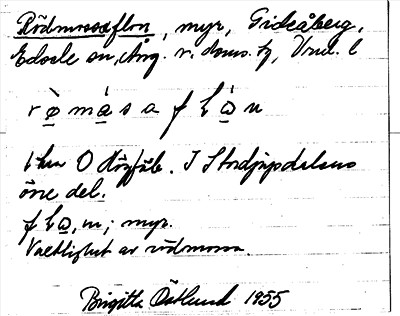 Rödmossaflon, myr, Gideåberg,
Edsele sn, Ång. v. doms. tg, Vrnl. l
r ò m a s a f L ò n
1 km O Högåsb. I Stordjupdalens
övre del.
f L o, m; myr.
Växtlighet av rödmossa.
Birgitta Östlund 1955